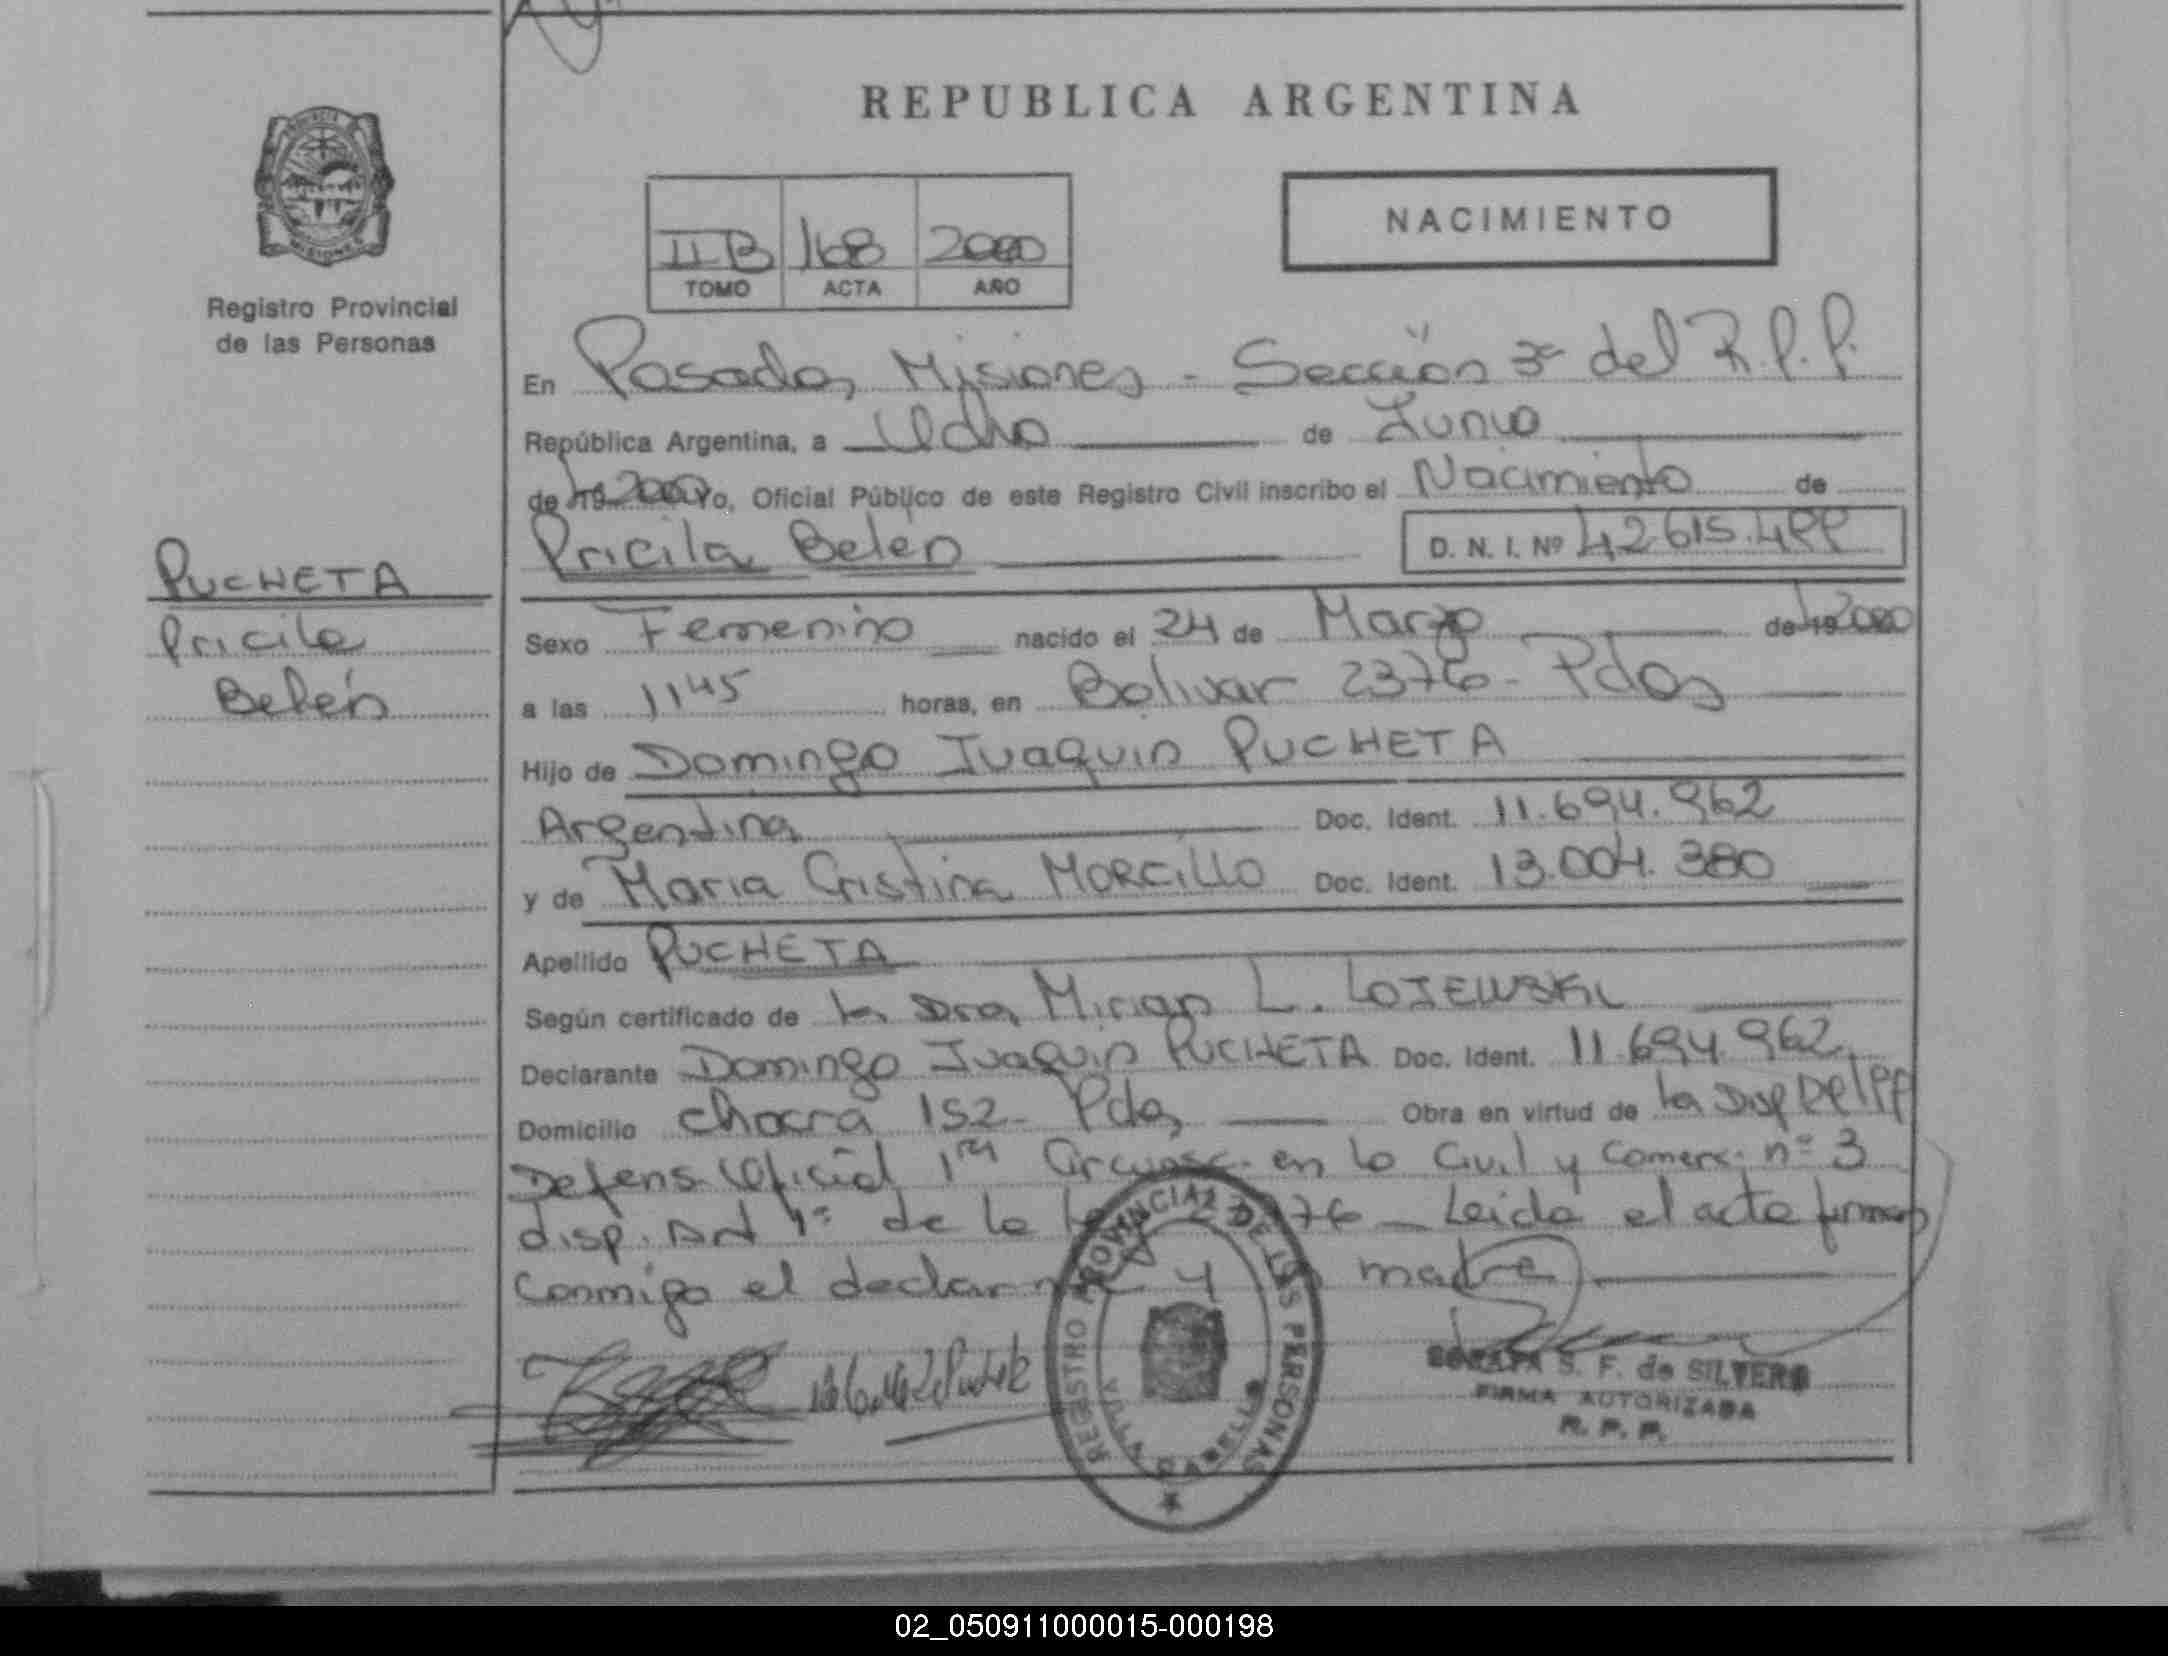 REPUBLICA ARGENTINA
PROVINCIA
MISIONES
Registro Provincial
de las Personas
NACIMIENTO
II B 168 2000
TOMO ACTA AÑO
En Posadas, Misiones - Sección 3ª del R.P.P.
República Argentina, a Ocho de Junio
de 19 2000 Yo, Oficial Público de este Registro Civil inscribo el Nacimiento de
Pricila Belén D. N. I. Nº 42615.499
PUCHETA
Pricila
Belén
Sexo Femenino nacido el 24 de Marzo de 19 2000
a las 11 45 horas, en Bolivar 2376 - Pdas
Hijo de Domingo Juaquin PUCHETA
Argentina Doc. Ident. 11.694.962
y de Maria Cristina MORCILLO Doc. Ident. 13.004.380
Apellido PUCHETA
Según certificado de la Dra, Mirian L. LOJEWSKI
Declarante Domingo Juaquin PUCHETA Doc. Ident. 11.694.962
Domicilio chacra 152 - Pdas Obra en virtud de la Disp
Defens. Oficial 1ra Circunsc. en lo Civil y Comerc. nº 3
disp. Art 1º de la 76 - Leida el acta firman
conmigo el declar y madre
REGISTRO PROVINCIAL DE LAS PERSONAS
VILLA CABELLO
S. F. de SILVERO
FIRMA AUTORIZADA
R. P. P.
02_050911000015-000198